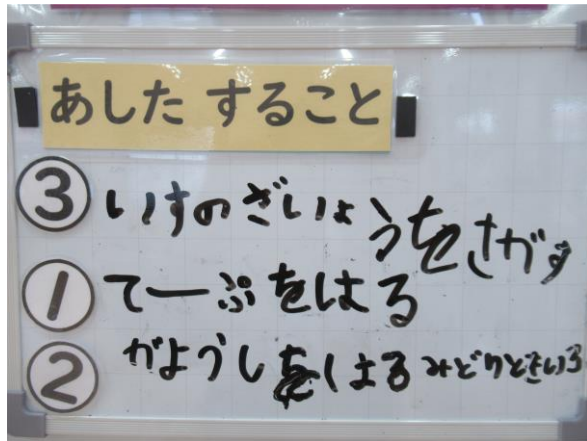 あした すること
③ いすのざいりょうをさがす
① てーぷをはる
② がようしをはる みどりときいろ